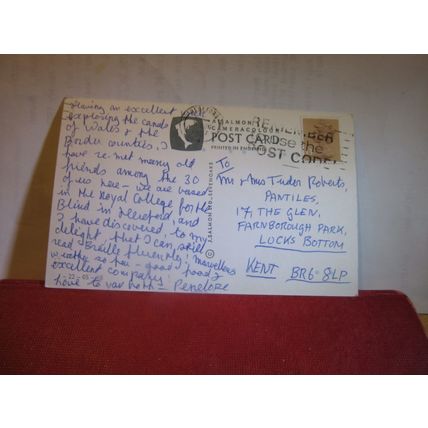 Having an excellent
exploring the canals
of Wales & the
Border counties, I
have re-met many old
friends among the 30
of us here - we are based
in the Royal College for the
Blind in Hereford, and
I have discovered, to my
delight, that I can still
read Braille fluently! Marvellous
weather so far - good food,
excellent company!
love to you both - Penelope
A SALMON
CAMERACOLOUR
POST CARD
PRINTED IN ENGLAND
© J. SALMON LTD., SEVENOAKS
REMEMBER
use the
POST CODE
To
Mr & Mrs Tudor Roberts,
PANTILES,
17, THE GLEN,
FARNBOROUGH PARK,
LOCKS BOTTOM
KENT BR6 8LP